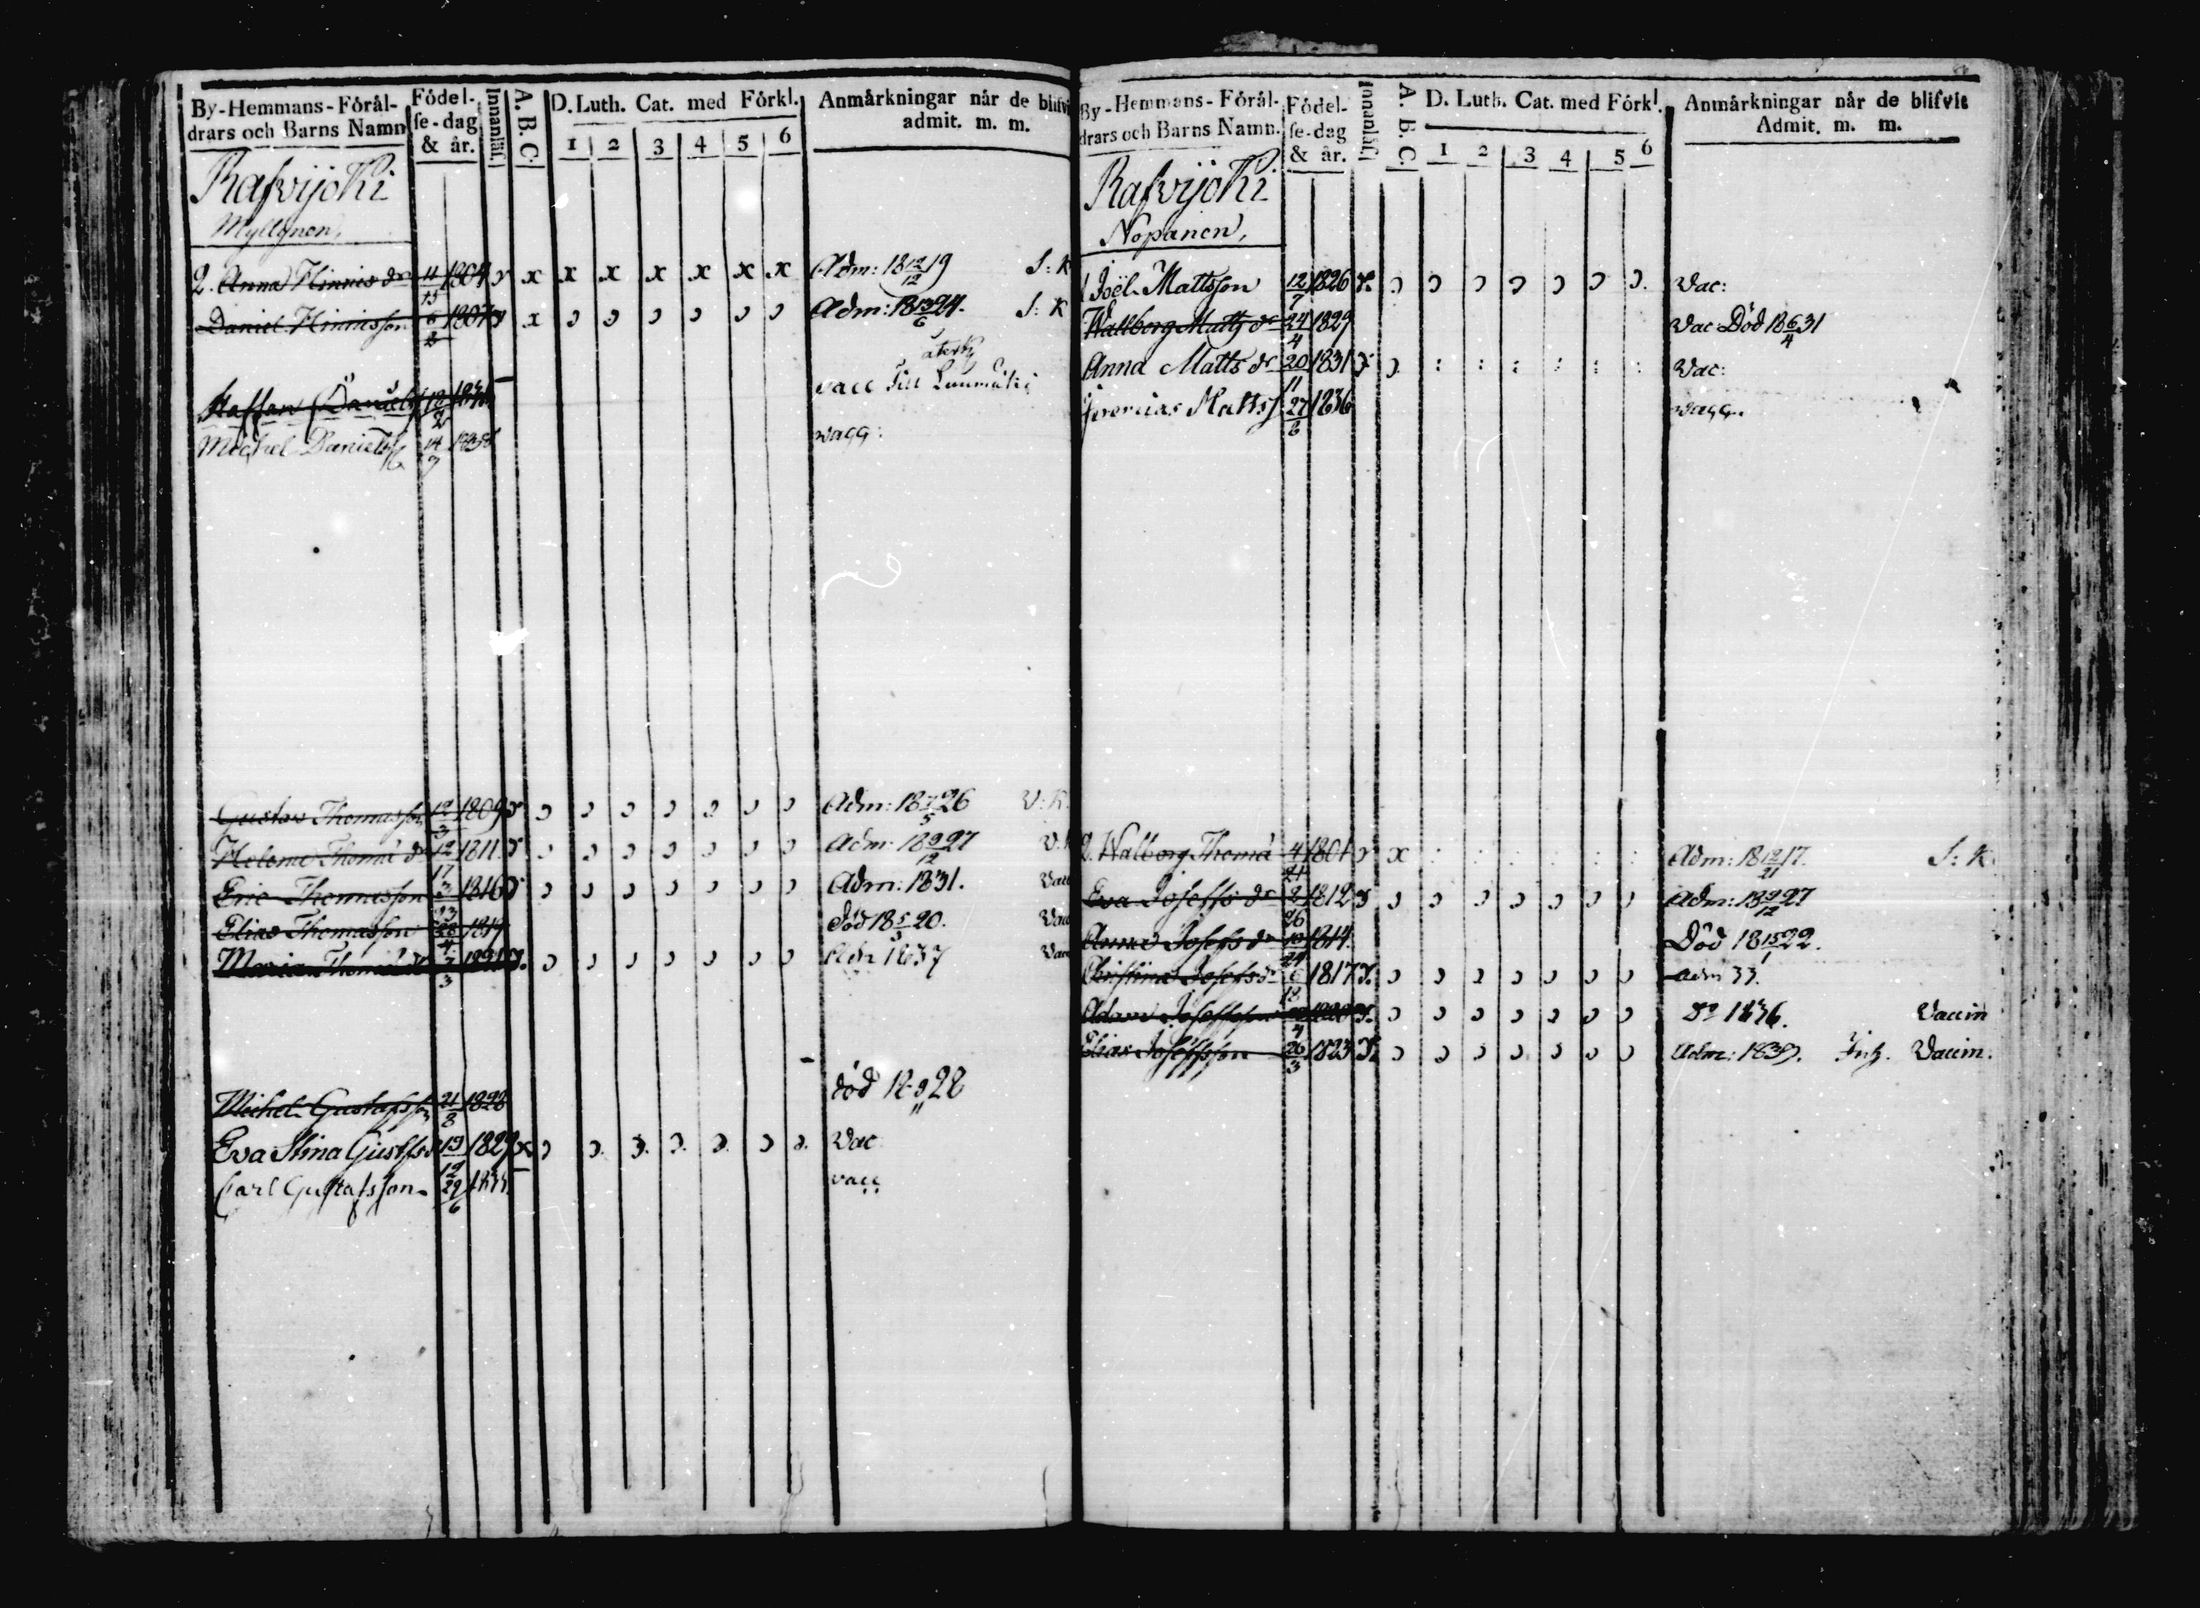 By-Hemmans-Förål- Födel- Innanläs. A. B. C. D. Luth. Cat. med Förkl. Anmärkningar når de blifvit
drars och Barns Namn se-dag & år. 1 2 3 4 5 6 admit. m. m.
Rafvijoki
Myllynen,
2. Anna Hinrics dr 11/15 1804 x x x x x x x Adm: 18 12/12 19 S: K
Daniel Hinricsson 6/2 1807 x x ɔ ɔ ɔ ɔ ɔ ɔ Adm: 18 13/6 24. S: K
vacc Till Luumäki
Staffan Daniels 12/2
Michel Danielss 14/7 vagg:
Gustav Thomasson 12/3 1809 ɔ ɔ ɔ ɔ ɔ ɔ ɔ Adm: 18 7/5 26 V: K.
Helena Thomæ dr 12/17 1811. ɔ ɔ ɔ ɔ ɔ ɔ Adm: 18 9/12 27
Eric Thomasson 3/23 1816 ɔ ɔ ɔ ɔ ɔ ɔ ɔ Adm: 1831. Vacc
Elias Thomasson 20/4 1819 död 18 5/3 20. Vac
Maria Thomæ dr 7/3 1821 ɔ ɔ ɔ ɔ ɔ ɔ ɔ Adm 1837 Vac
Michel Gustafsson 21/8 1828 död 18 9/11 28
Eva Stina Gustfsd 19/12 1829 x ɔ ɔ. ɔ. ɔ. ɔ. ɔ ɔ. Vac
Carl Gustafsson 29/6 vacc
By-Hemmans-Förål- Födel- Innanläs. A. B. C. D. Luth. Cat. med Förkl. Anmärkningar når de blifvit
drars och Barns Namn. se-dag & år. 1 2 3 4 5 6 Admit. m. m.
Rafvijoki
Nopanen,
1 Joël Mattsson 12/7 1826 ɔ ɔ ɔ ɔ ɔ ɔ ɔ. Vac:
Wallborg Matts dr 24/4 1829 Vac Död 18 6/4 31
Anna Matts dr 20/11 1831 ɔ : : : : : : Vac:
Jeremias Matts 27/6 1836 vagg.
2. Walborg Thomæ 4/21 1801 x : : : : : : Adm: 18 12/21 17. S: K.
Eva Josephs dr 2/26 1812 ɔ ɔ ɔ ɔ ɔ ɔ ɔ Adm: 18 9/12 27
Anna Josephs dr 10/29 1814. Död 18 15/1 22.
Christina Josephs dr 6/12 1817 ɔ ɔ ɔ ɔ ɔ ɔ ɔ adm 33.
Adam Josephsson ɔ ɔ ɔ ɔ ɔ ɔ ɔ Do 1836. Vaccin
Elias Josephsson 26/3 1823 ɔ ɔ ɔ ɔ ɔ ɔ ɔ Adm: 1839. Vaccin.